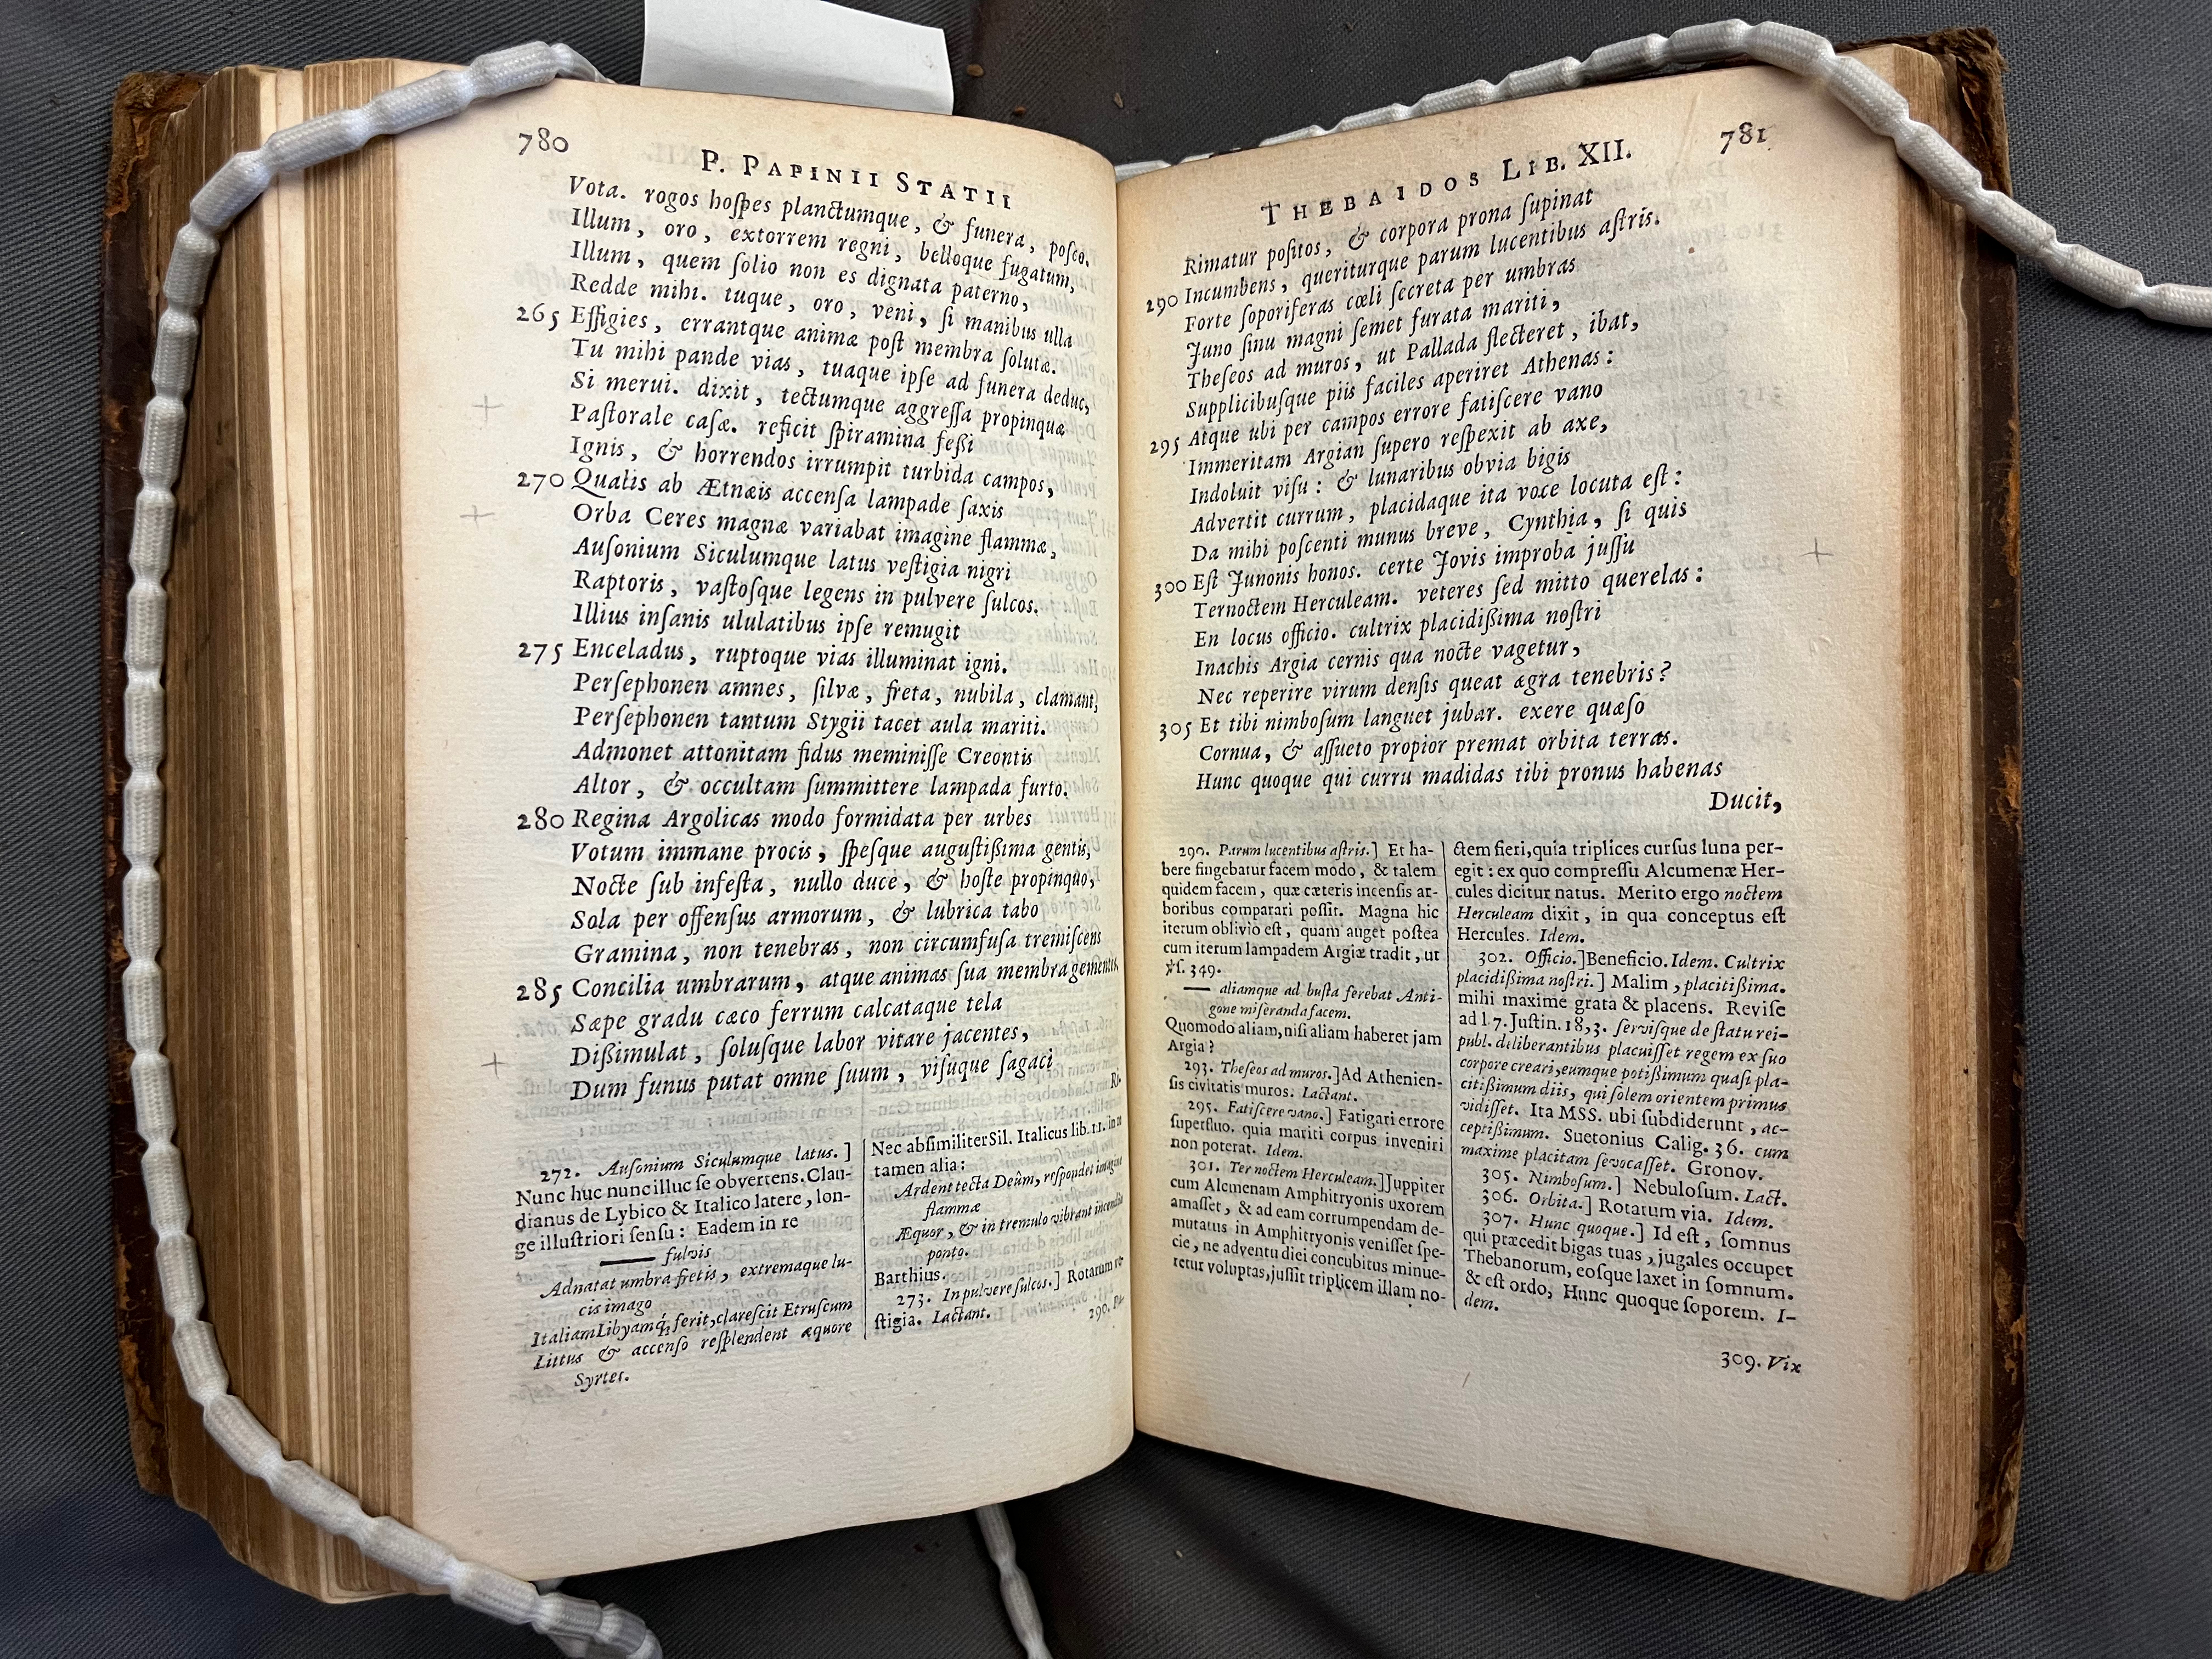 780
P. PAPINII STATII
Vota. rogos hoſpes planctumque, & funera, poſco.
Illum, oro, extorrem regni, belloque fugatum,
Illum, quem ſolio non es dignata paterno,
Redde mihi. tuque, oro, veni, ſi manibus ulla
265 Effigies, errantque animæ poſt membra ſolutæ.
Tu mihi pande vias, tuaque ipſe ad funera deduc,
Si merui. dixit, tectumque aggreſſa propinquæ
Paſtorale caſæ. reficit ſpiramina feßi
Ignis, & horrendos irrumpit turbida campos,
270 Qualis ab Ætnæis accenſa lampade ſaxis
Orba Ceres magnæ variabat imagine flammæ,
Auſonium Siculumque latus veſtigia nigri
Raptoris, vaſtoſque legens in pulvere ſulcos.
Illius inſanis ululatibus ipſe remugit
275 Enceladus, ruptoque vias illuminat igni.
Perſephonen amnes, ſilvæ, freta, nubila, clamant,
Perſephonen tantum Stygii tacet aula mariti.
Admonet attonitam fidus meminiſſe Creontis
Altor, & occultam ſummittere lampada furto.
280 Regina Argolicas modo formidata per urbes
Votum immane procis, ſpeſque auguſtißima gentis,
Nocte ſub infeſta, nullo duce, & hoſte propinquo,
Sola per offenſus armorum, & lubrica tabo
Gramina, non tenebras, non circumfuſa tremiſcens
285 Concilia umbrarum, atque animas ſua membra gementes,
Sæpe gradu cæco ferrum calcataque tela
Dißimulat, ſoluſque labor vitare jacentes,
Dum funus putat omne ſuum, viſuque ſagaci
Ri-
272. Auſonium Siculumque latus.]
Nunc huc nunc illuc ſe obvertens. Clau-
dianus de Lybico & Italico latere, lon-
ge illuſtriori ſenſu: Eadem in re
—— fulvis
Adnatat umbra fretis, extremaque lu-
cis imago
Italiam Libyamq́; ferit, clareſcit Etruſcum
Littus & accenſo reſplendent æquore
Syrtes.
Nec abſimiliter Sil. Italicus lib. 11. in re
tamen alia:
Ardent tecta Deûm, reſpondet imagine
flammæ
Æquor, & in tremulo vibrant incendia
ponto.
Barthius.
273. In pulvere ſulcos.] Rotarum ve-
ſtigia. Lactant.
290. Pa-
THEBAIDOS LIB. XII.
781
Rimatur poſitos, & corpora prona ſupinat
290 Incumbens, queriturque parum lucentibus aſtris.
Forte ſoporiferas cœli ſecreta per umbras
Juno ſinu magni ſemet furata mariti,
Theſeos ad muros, ut Pallada flecteret, ibat,
Supplicibuſque piis faciles aperiret Athenas:
295 Atque ubi per campos errore fatiſcere vano
Immeritam Argian ſupero reſpexit ab axe,
Indoluit viſu: & lunaribus obvia bigis
Advertit currum, placidaque ita voce locuta eſt:
Da mihi poſcenti munus breve, Cynthia, ſi quis
300 Eſt Junonis honos. certe Jovis improba juſſu
Ternoctem Herculeam. veteres ſed mitto querelas:
En locus officio. cultrix placidißima noſtri
Inachis Argia cernis qua nocte vagetur,
Nec reperire virum denſis queat ægra tenebris?
305 Et tibi nimboſum languet jubar. exere quæſo
Cornua, & aſſueto propior premat orbita terras.
Hunc quoque qui curru madidas tibi pronus habenas
Ducit,
290. Parum lucentibus aſtris.] Et ha-
bere fingebatur facem modo, & talem
quidem facem, quæ cæteris incenſis ar-
boribus comparari poſſit. Magna hic
iterum oblivio eſt, quam auget poſtea
cum iterum lampadem Argiæ tradit, ut
ꝟſ. 349.
—— aliamque ad buſta ferebat Anti-
gone miſeranda facem.
Quomodo aliam, niſi aliam haberet jam
Argia?
293. Theſeos ad muros.] Ad Athenien-
ſis civitatis muros. Lactant.
295. Fatiſcere vano.] Fatigari errore
ſuperfluo. quia mariti corpus inveniri
non poterat. Idem.
301. Ter noctem Herculeam.] Juppiter
cum Alcmenam Amphitryonis uxorem
amaſſet, & ad eam corrumpendam de-
mutatus in Amphitryonis veniſſet ſpe-
cie, ne adventu diei concubitus minue-
retur voluptas, juſſit triplicem illam no-
ctem fieri, quia triplices curſus luna per-
egit: ex quo compreſſu Alcumenæ Her-
cules dicitur natus. Merito ergo noctem
Herculeam dixit, in qua conceptus eſt
Hercules. Idem.
302. Officio.] Beneficio. Idem. Cultrix
placidißima noſtri.] Malim, placitißima.
mihi maxime grata & placens. Reviſe
ad l. 7. Juſtin. 18, 3. ſerviſque de ſtatu rei-
publ. deliberantibus placuiſſet regem ex ſuo
corpore creari, eumque potißimum quaſi pla-
citißimum diis, qui ſolem orientem primus
vidiſſet. Ita MSS. ubi ſubdiderunt, ac-
ceptißimum. Suetonius Calig. 36. cum
maxime placitam ſevocaſſet. Gronov.
305. Nimboſum.] Nebuloſum. Lact.
306. Orbita.] Rotatum via. Idem.
307. Hunc quoque.] Id eſt, ſomnus
qui præcedit bigas tuas, jugales occupet
Thebanorum, eoſque laxet in ſomnum.
& eſt ordo, Hunc quoque ſoporem. I-
dem.
309. Vix